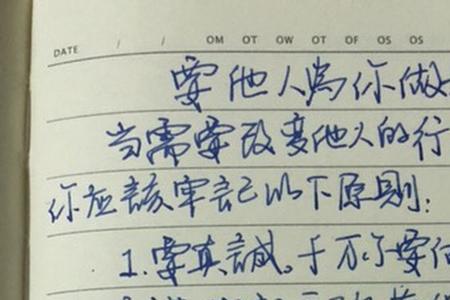 DATE / / OM OT OW OT OF OS OS
要他人為你做
当需要改变他人的行
你应該牢記以下原則:
1.要真誠。千万不要